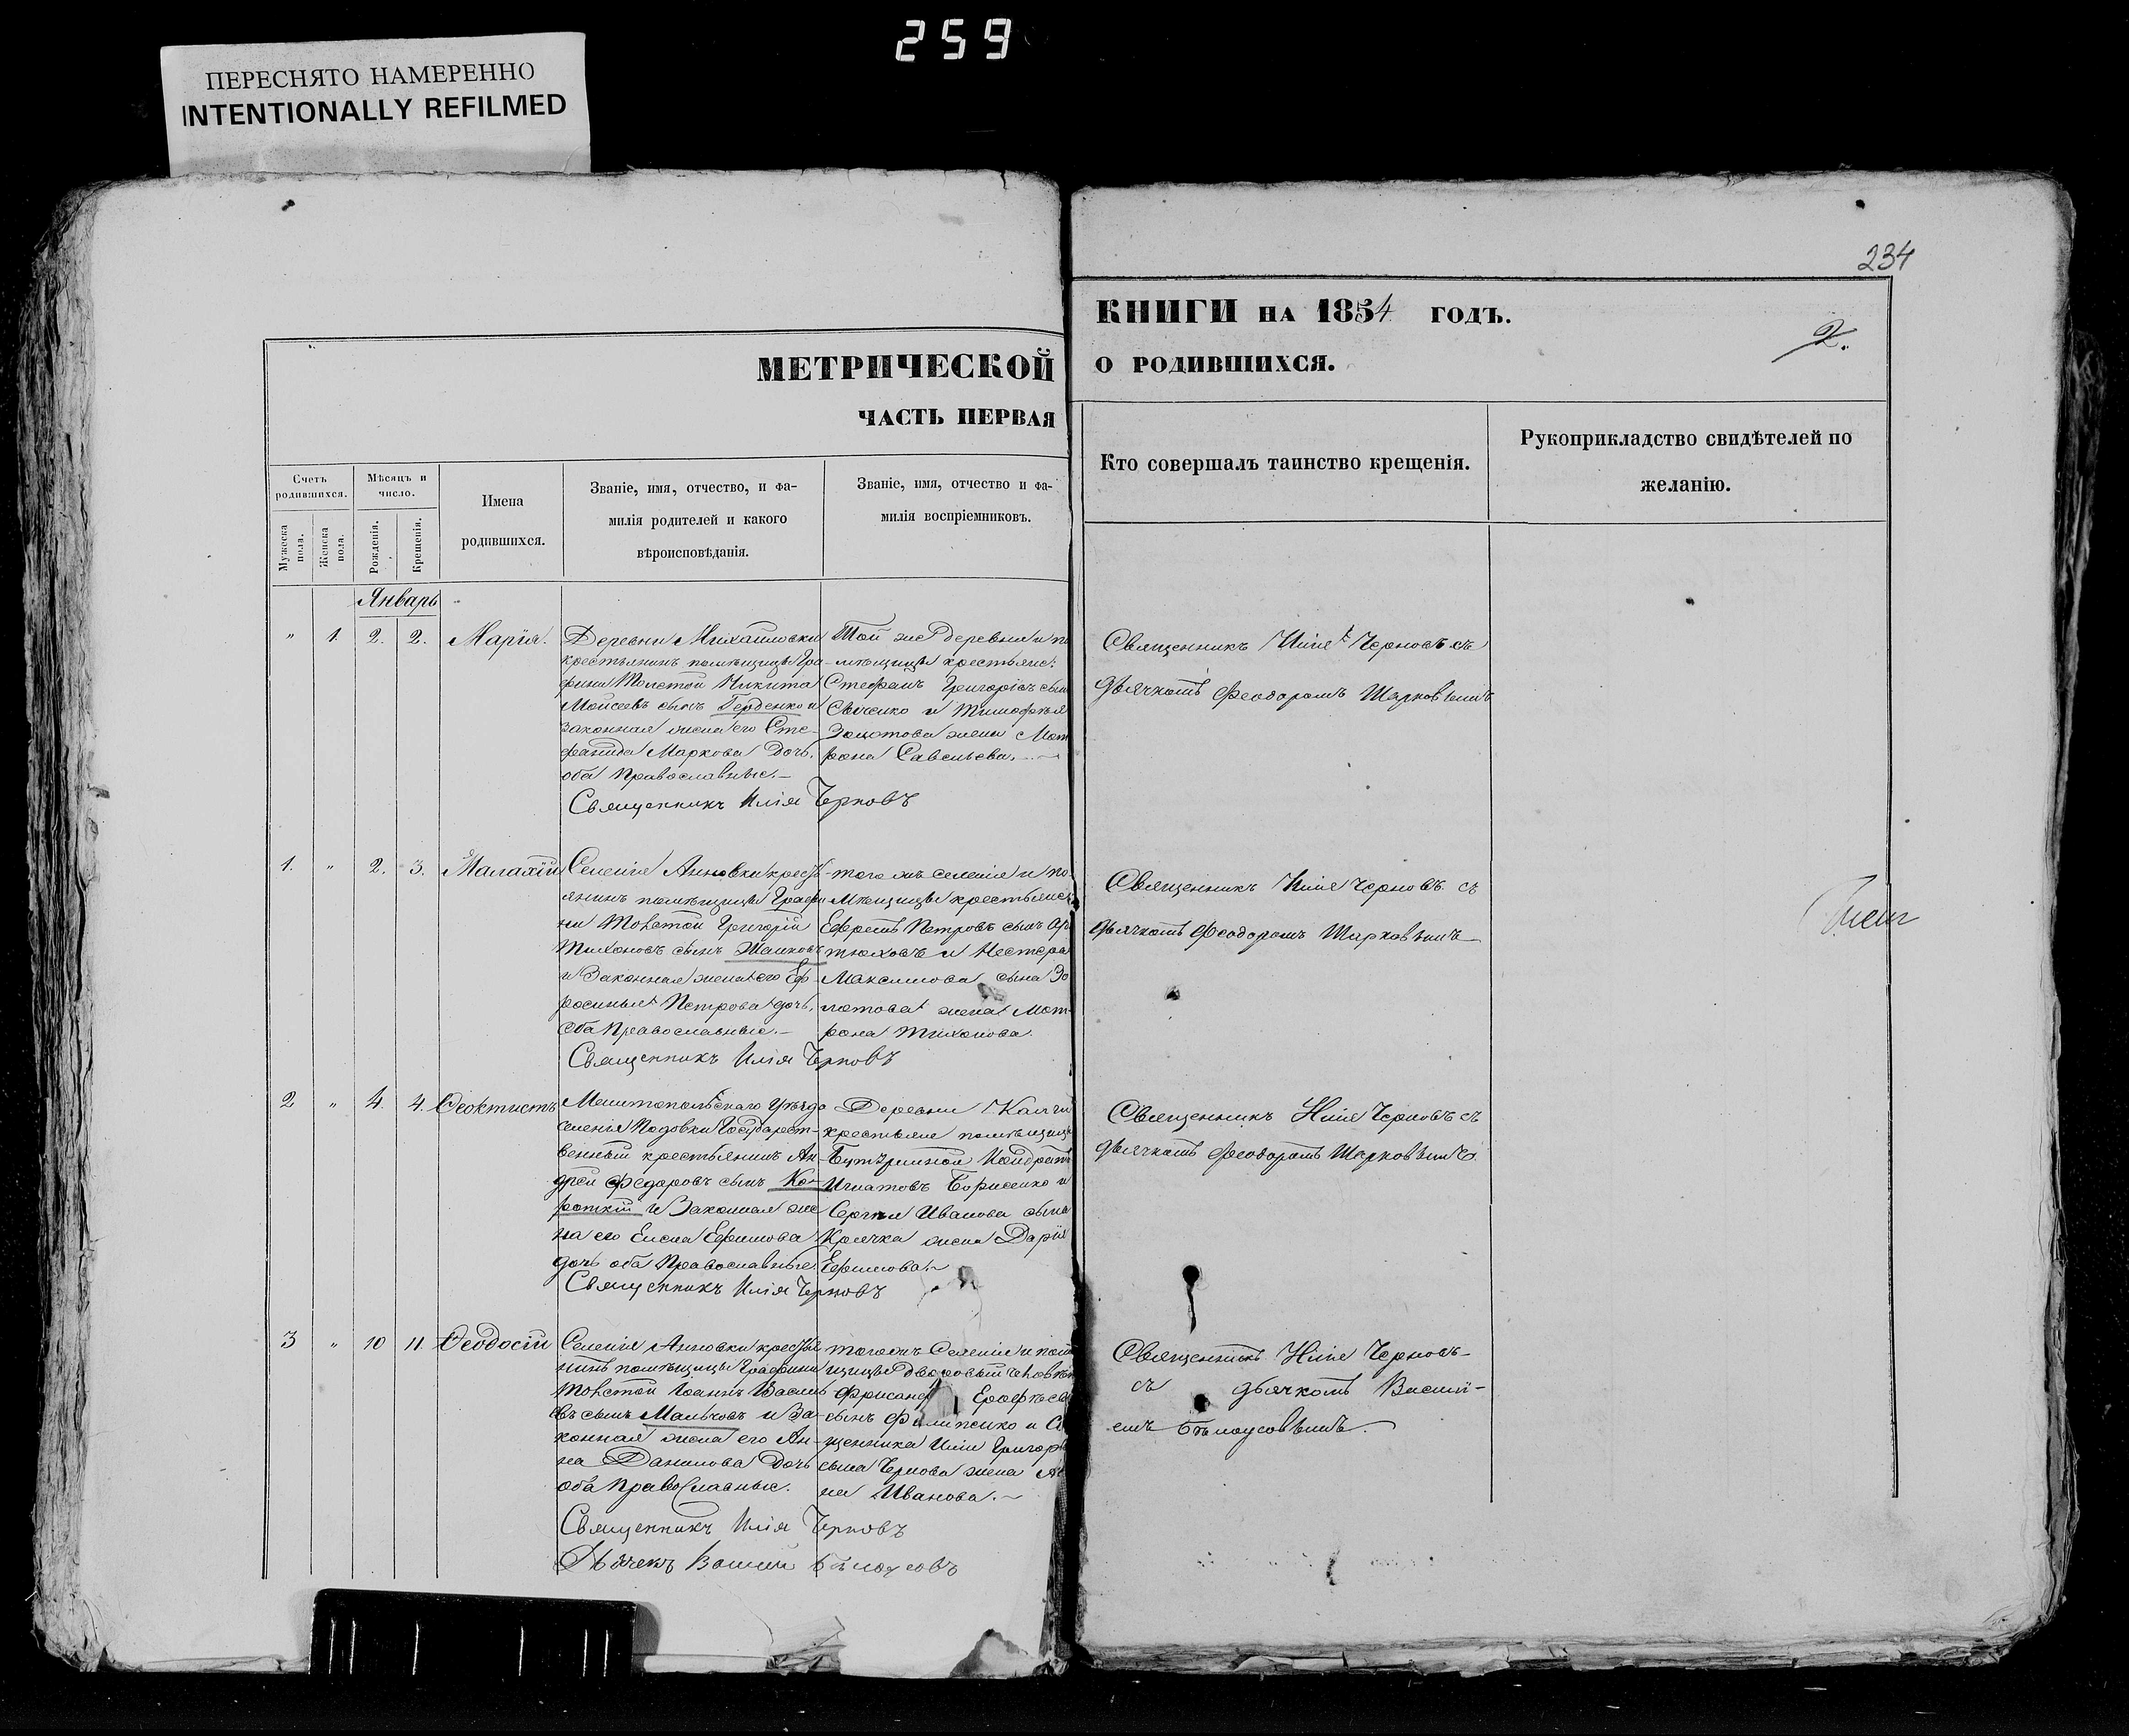 259
ПЕРЕСНЯТО НАМЕРЕННО
INTENTIONALLY REFILMED
234
МЕТРИЧЕСКОЙ
ЧАСТЬ ПЕРВАЯ
КНИГИ НА 1854 ГОДЪ.
2.
О РОДИВШИХСЯ.
Счетъ
родившихся.
Мужеска
пола.
Женска
пола.
Мѣсяцъ и
число.
Рожденія.
Крещенія.
Имена
родившихся.
Званіе, имя, отчество, и фа-
милія родителей и какого
вѣроисповѣданія.
Званіе, имя, отчество и фа-
милія воспріемниковъ.
Кто совершалъ таинство крещенія.
Рукоприкладство свидѣтелей по
желанію.
Январь
" 1. 2. 2. Марія.
Деревни Михайловки
крестьянинъ помѣщицы Гра-
фини Толстой Никита
Моисеевъ сынъ Герденко и
законная жена его Сте-
фанида Маркова дочь,
оба Православные.–
Той же деревни и по
мѣщицы крестьяне:
Стефанъ Григорьевъ сынъ
и Тимофея
Золотова жена Мат
рона Савельева.
Священникъ Илія Черновъ
Священникъ Илія Черновъ съ
дьячкомъ Феодоромъ Шарковымъ
1. " 2. 3. Малахій
Селенія Анновки кресть
янинъ помѣщицы Графи
ни Толстой Григорій
Тихоновъ сынъ
и Законная жена его Еф
росинья Петрова дочь,
оба Православные.–
того жъ селенія и по
мѣщицы крестьяне:
Ефремъ Петровъ сынъ Ар
тюховъ и Нестера
Максимова сына Зо
лотова жена Мат
рона Тихонова.
Священникъ Илія Черновъ
Священникъ Илія Черновъ съ
дьячкомъ Феодоромъ Шарковымъ
2 " 4. 4. Феоктистъ
Мелитопольскаго Уѣзда
селенія Подовки Государст-
венный крестьянинъ Ан-
дрей Федоровъ сынъ Ко-
роткій и Законная же
на его Елена Ефимова
дочь оба Православные.
Деревни
крестьяне помѣщицы
Кондратъ
Игнатовъ Борисенко и
Сергѣя Иванова сына
Крячка жена Дарія
Ефимова.
Священникъ Илія Черновъ
Священникъ Илія Черновъ съ
дьячкомъ Феодоромъ Шарковымъ
3 " 10 11. Феодосій
Селенія Анновки крестья
нинъ помѣщицы Графини
Толстой Іоаннъ Василь
евъ сынъ Мальковъ и За-
конная жена его Ан-
на Данилова дочь
оба Православные.
тогожъ Селенія и помѣ
щицы дворовый человѣкъ
Ерофеевъ
сынъ Филипенко и Св
щенника Иліи Григорь
сына Чернова жена Ан
на Иванова.
Священникъ Илія Черновъ
Дьячекъ Василій Бѣлоусовъ
Священникъ Илія Черновъ
съ дьячкомъ Васили-
емъ Бѣлоусовымъ.